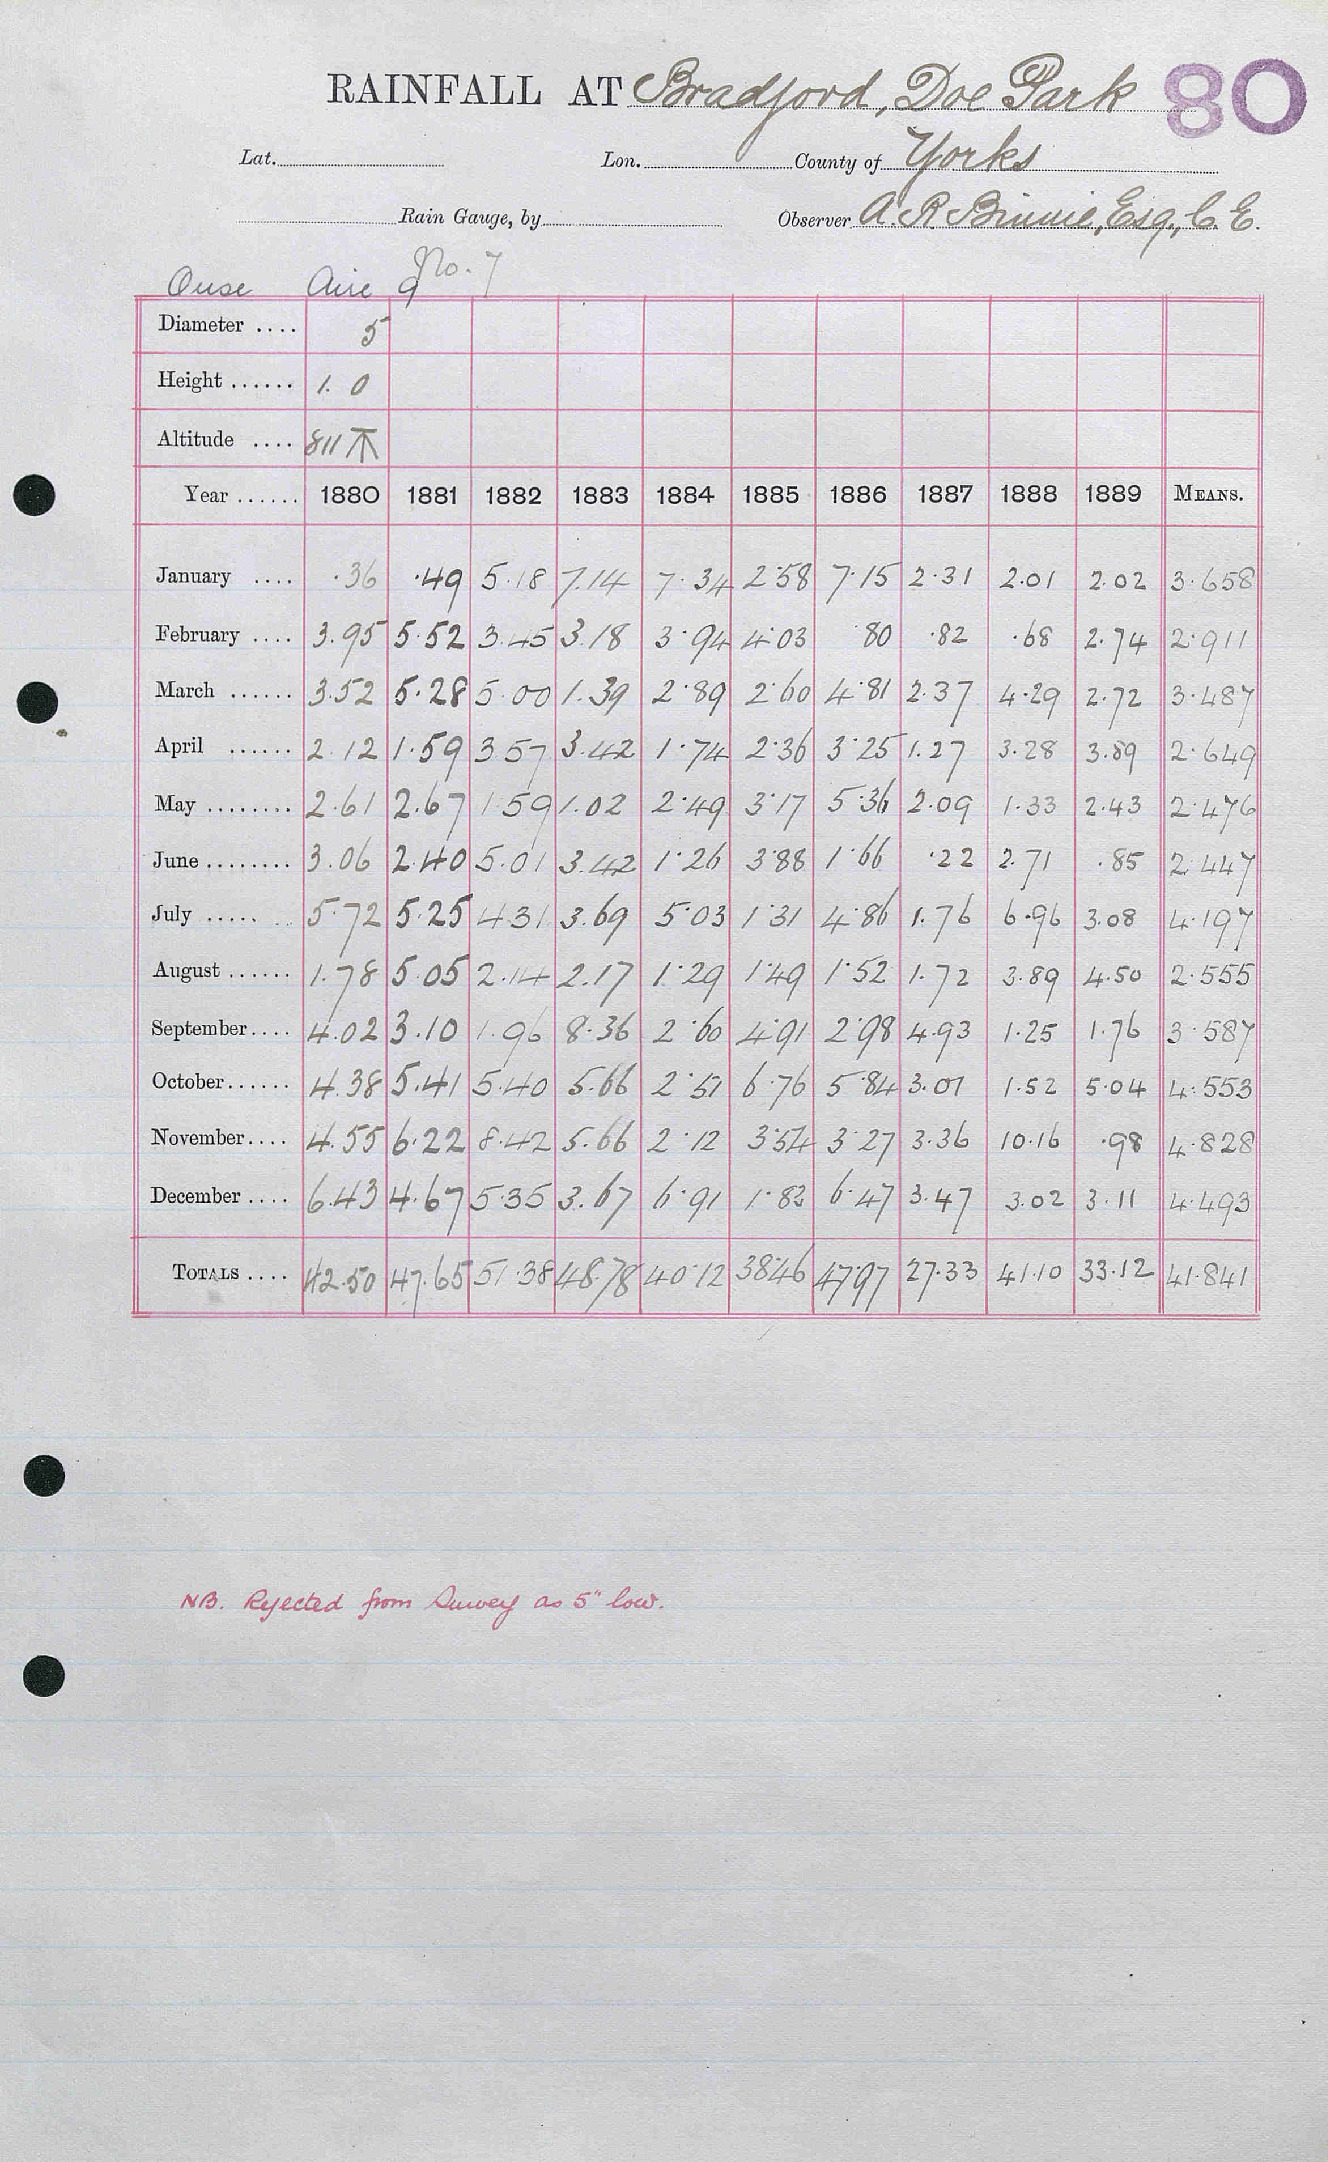 RAINFALL AT Bradford, Doe Park 80
Lat. Lon. County of Yorks
Rain Gauge, by Observer A. R. Binnie, Esq., C. E.
No. 7
Ouse Aire 9
Diameter .... 5
Height ...... 1. 0
Altitude .... 811
Year ...... 1880 1881 1882 1883 1884 1885 1886 1887 1888 1889 MEANS.
January .... .36 .49 5.18 7.14 7.34 2.58 7.15 2.31 2.01 2.02 3.658
February .... 3.95 5.52 3.45 3.18 3.94 4.03 .80 .82 .68 2.74 2.911
March ...... 3.52 5.28 5.00 1.39 2.89 2.60 4.81 2.37 4.29 2.72 3.487
April ...... 2.12 1.59 3.57 3.42 1.74 2.36 3.25 1.27 3.28 3.89 2.649
May ........ 2.61 2.67 1.59 1.02 2.49 3.17 5.36 2.09 1.33 2.43 2.476
June ........ 3.06 2.40 5.01 3.42 1.26 3.88 1.66 .22 2.71 .85 2.447
July ..... 5.72 5.25 4.31 3.69 5.03 1.31 4.86 1.76 6.96 3.08 4.197
August ...... 1.78 5.05 2.14 2.17 1.29 1.49 1.52 1.72 3.89 4.50 2.555
September .... 4.02 3.10 1.96 8.36 2.60 4.91 2.98 4.93 1.25 1.76 3.587
October ...... 4.38 5.41 5.40 5.66 2.51 6.76 5.84 3.01 1.52 5.04 4.553
November .... 4.55 6.22 8.42 5.66 2.12 3.54 3.27 3.36 10.16 .98 4.828
December .... 6.43 4.67 5.35 3.67 6.91 1.83 6.47 3.47 3.02 3.11 4.493
TOTALS .... 42.50 47.65 51.38 48.78 40.12 38.46 47.97 27.33 41.10 33.12 41.841
NB. Rejected from Survey as 5" low.